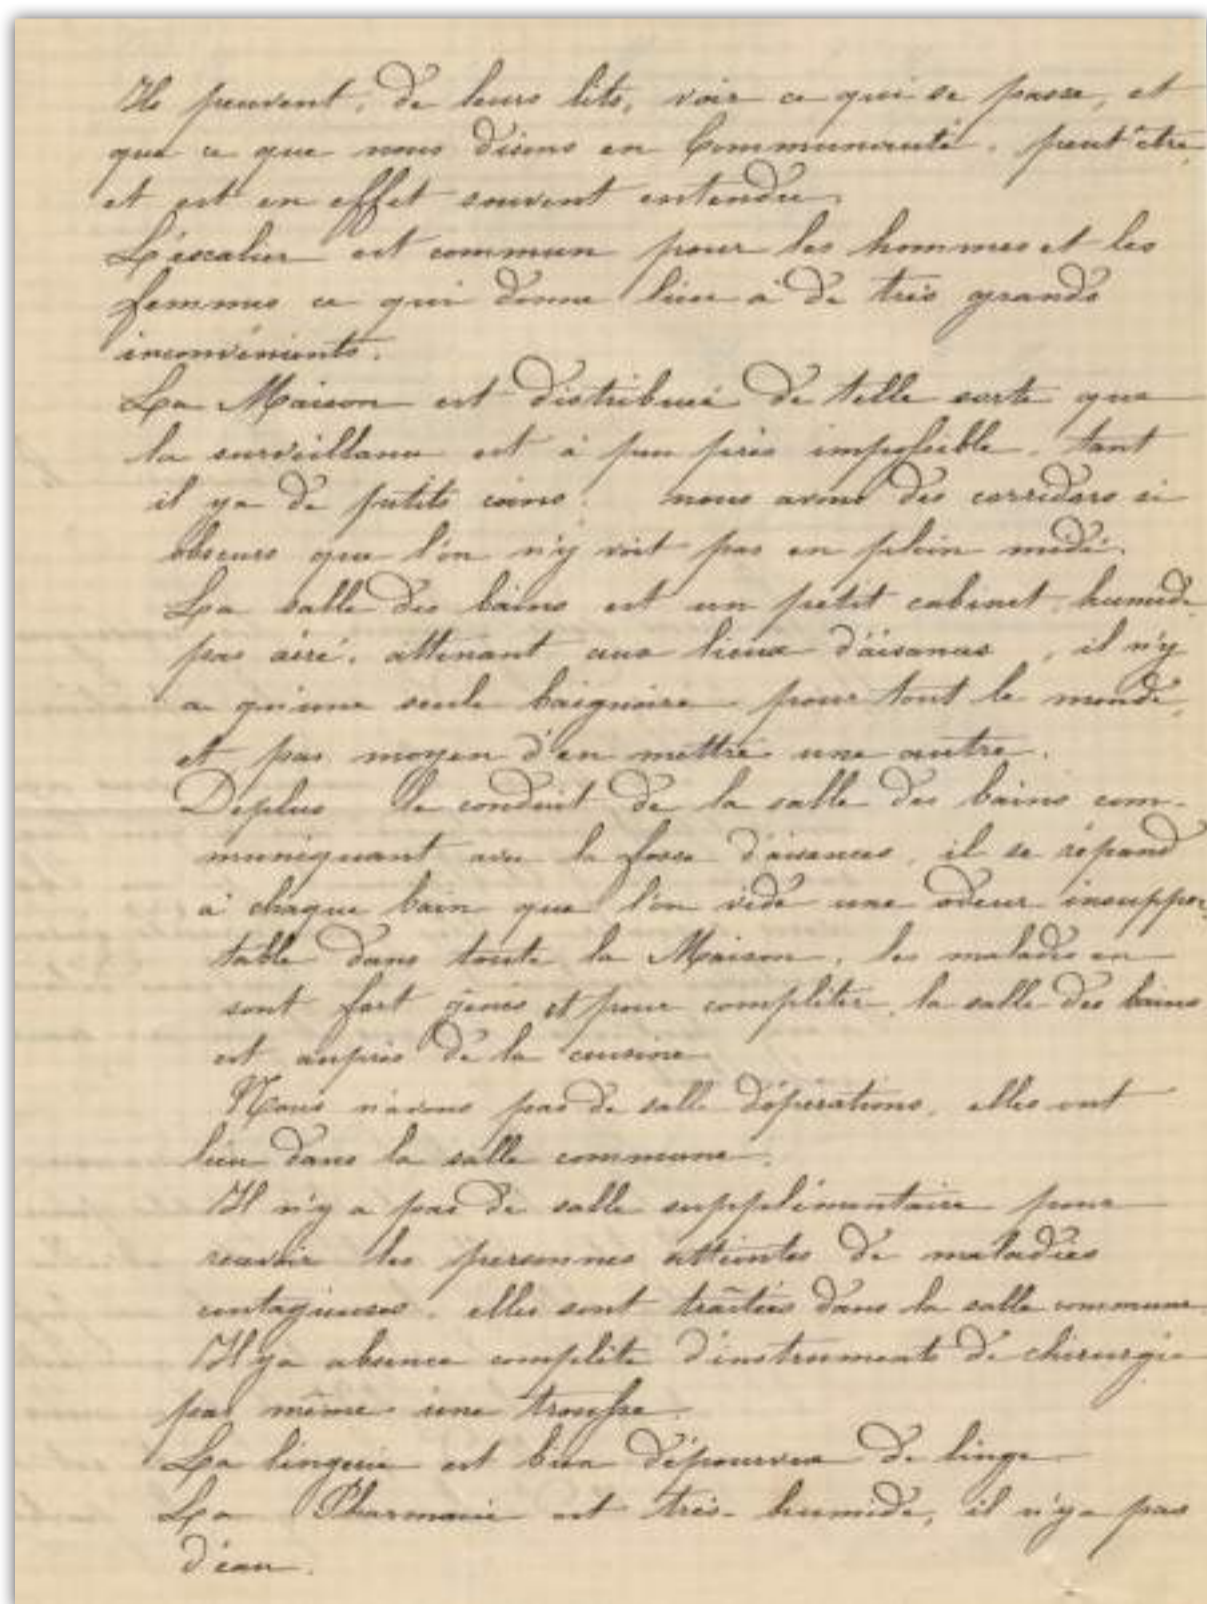 Ils peuvent, de leurs lits, voir ce qui se passe, et
que ce que nous disons en Communauté, peut être
et est en effet souvent entendu.
L'éscalier est commun pour les hommes et les
femmes ce qui donne lieu à de très grands
inconvénients.
La Maison est distribuée de telle sorte que
la surveillance est à peu près impossible, tant
il y a de petits coins. nous avons des corridors si
obscurs que l'on n'y voit pas en plein midi.
La salle des bains est un petit cabinet humide
pas aéré, attenant aux lieux d'aisances, il n'y
a qu'une seule baignoire pour tout le monde,
et pas moyen d'en mettre une autre.
Deplus le conduit de la salle des bains com-
muniquant avec la fosse d'aisances, il se répand
à chaque bain que l'on vide une odeur insuppor-
table dans toute la Maison, les malades en
sont fort gênés et pour compléter, la salle des bains
est auprès de la cuisine
Nous n'avons pas de salle d'opérations, elles ont
lieu dans la salle commune.
Il n'y a pas de salle supplémentaire pour
recevoir les personnes atteintes de maladies
contagieuses, elles sont traitées dans la salle commune
Il y a absence complète d'instruments de chirurgie
pas même une trousse.
La lingerie est bien dépourvue de linge
La Pharmacie est très-humide, il n'y a pas
d'eau.